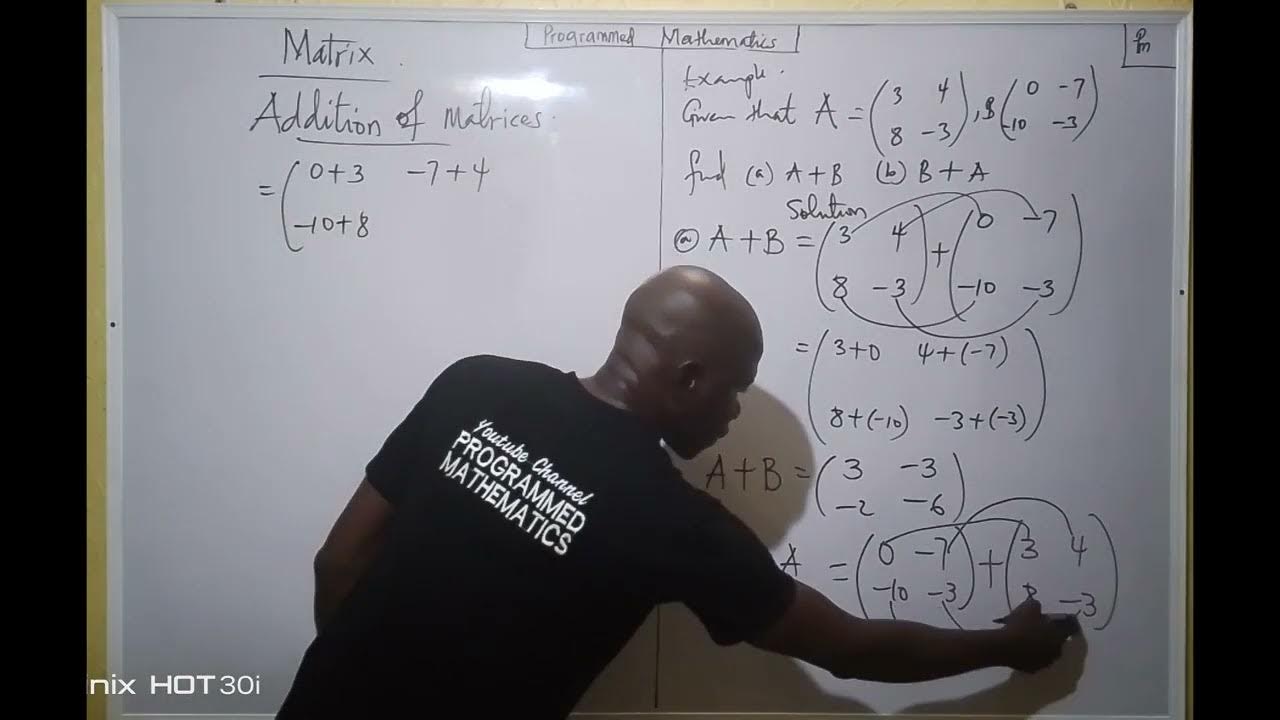 Programmed Mathematics
Pm
Matrix.
Addition of matrices.
= ( 0+3 -7+4
-10+8
Example.
Given that A = ( 3 4 ), B ( 0 -7 )
8 -3 -10 -3
find (a) A+B (b) B+A
Solution
(a) A+B = ( 3 4 ) + ( 0 -7 )
8 -3 -10 -3
= ( 3+0 4+(-7) )
8+(-10) -3+(-3)
A+B = ( 3 -3 )
-2 -6
A = ( 0 -7 ) + ( 3 4 )
-10 -3 8 -3
Youtube Channel
PROGRAMMED
MATHEMATICS
nix HOT 30i